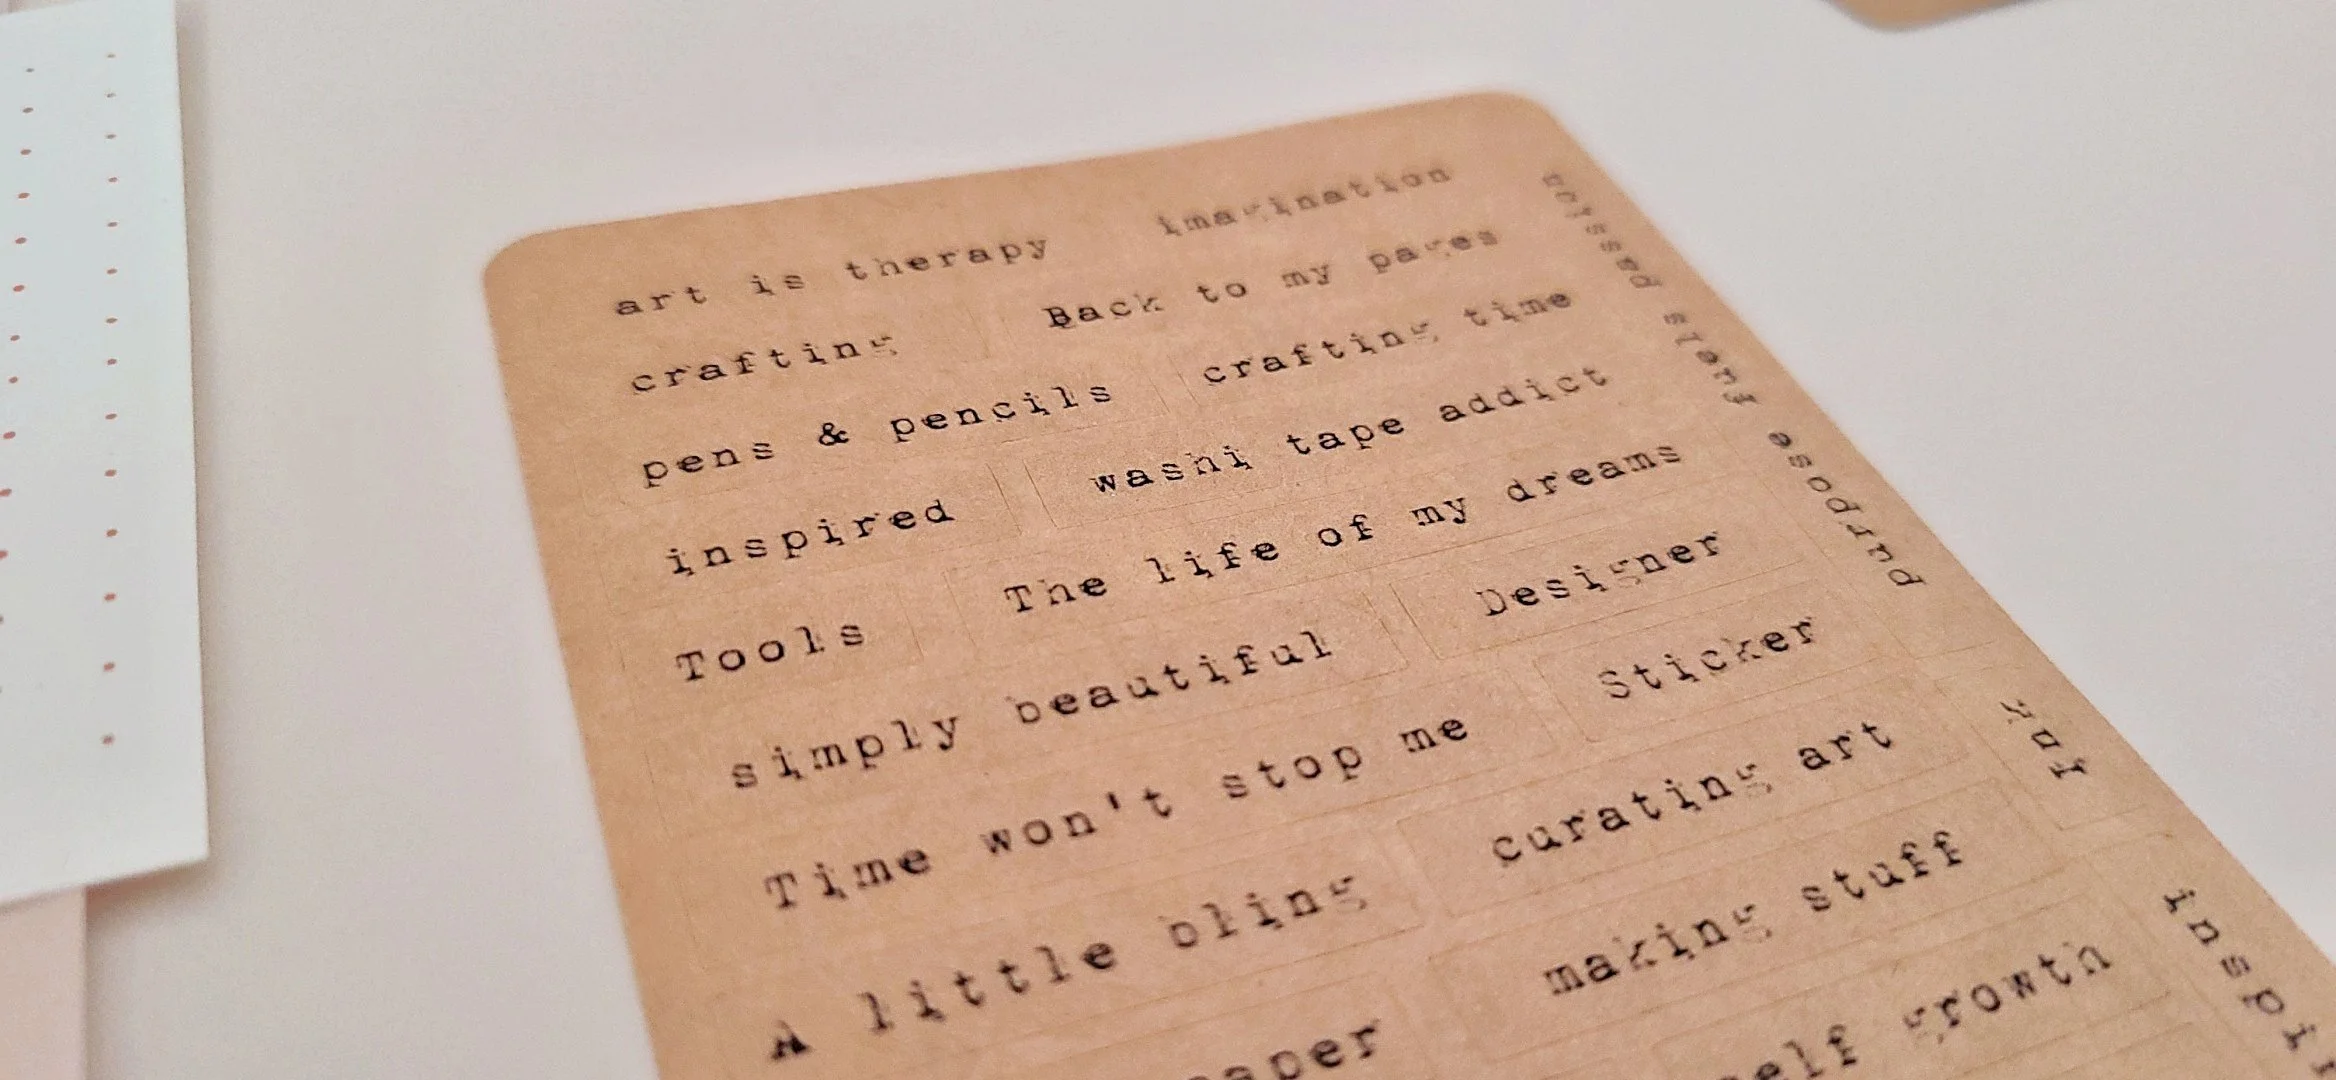 art is therapy
imagination
crafting
Back to my pages
pens & pencils
crafting time
inspired
washi tape addict
Tools
The life of my dreams
simply beautiful
Designer
Time won't stop me
Sticker
A little bling
curating art
making stuff
aper
elf growth
purpose fuels passion
inspir